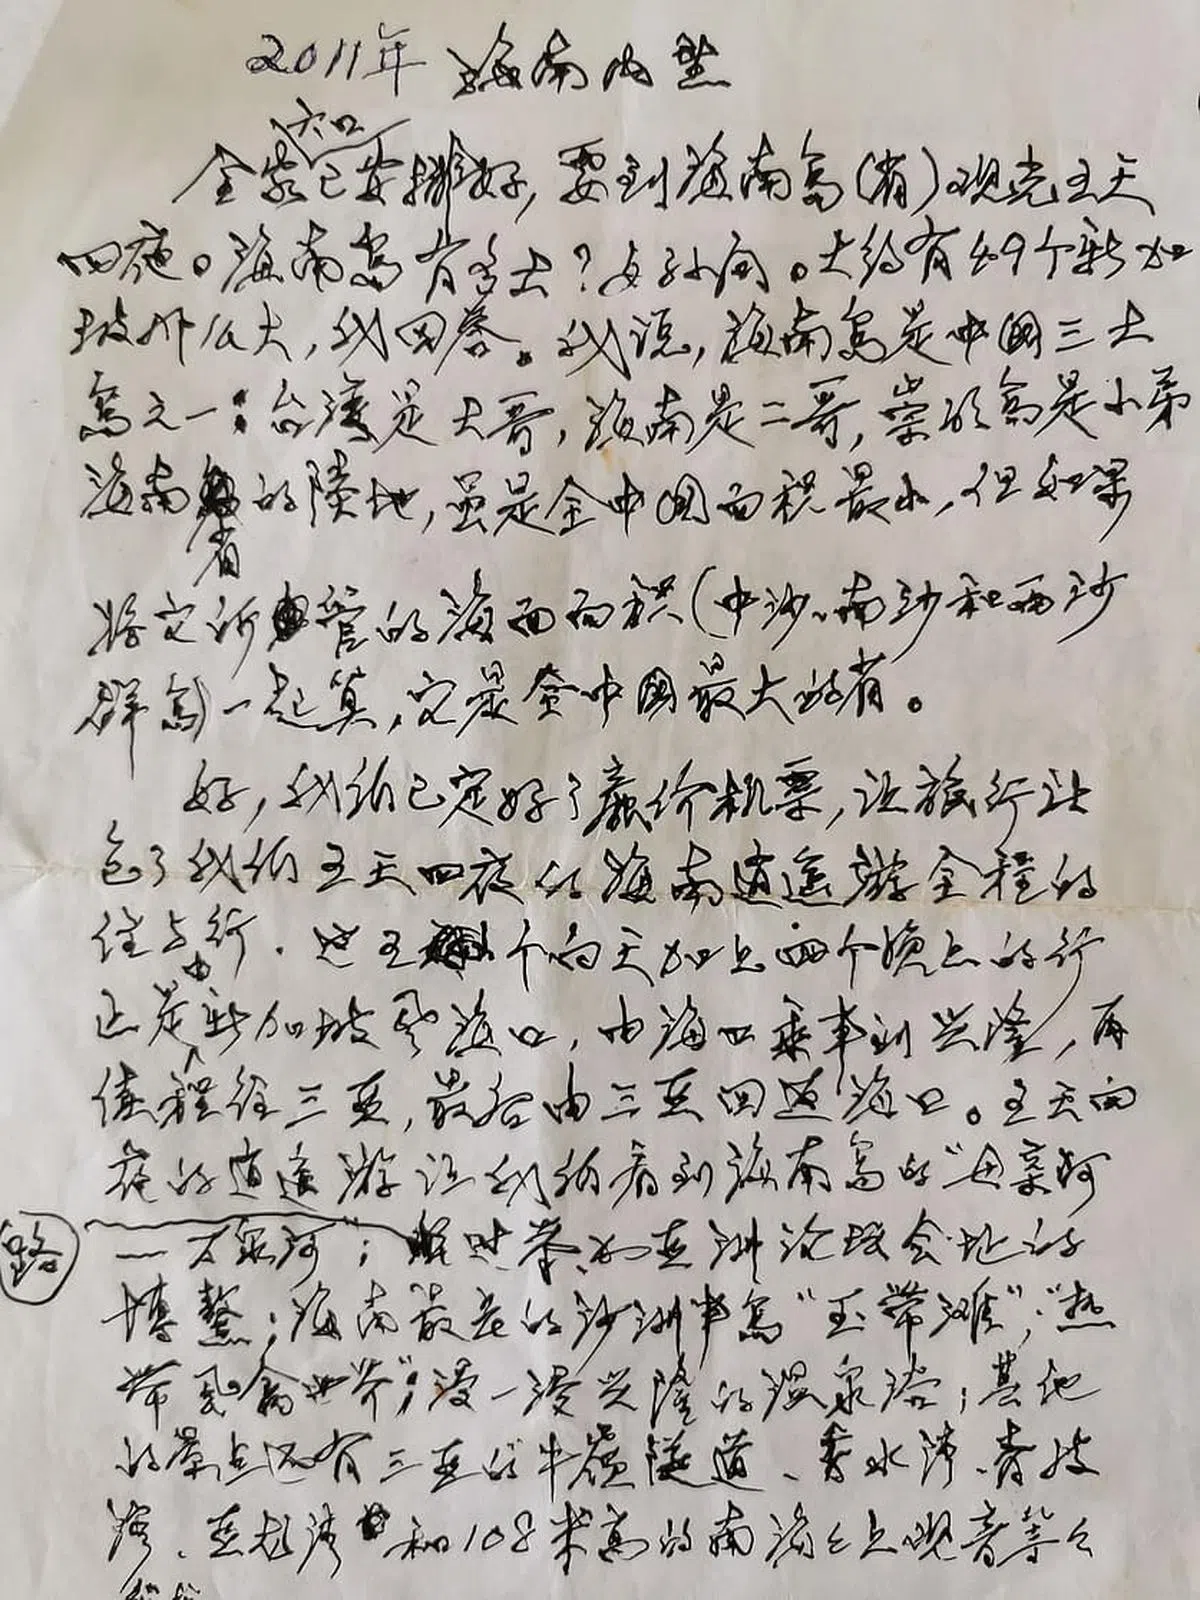 2011年 海南内
六口
全家已安排好，要到海南岛(省)观光五天
四夜。海南岛有多大？女孙问。大约有49个新加
坡那么大，我回答。我说，海南岛是中国三大
岛之一：台湾是大哥，海南是二哥，崇明岛是小弟
海南 的陸地，虽是全中国面积最小，但如果
省
将它所管的海面面积(中沙、南沙和西沙
群岛)一起算，它是全中国最大的省。
好，我们已定好了廉价机票，让旅行社
包了我们五天四夜的海南逍遥游全程的
住与行。这五个白天加上四个晚上的行
由
正是新加坡飞海口，由海口乘车到兴隆，再
程往三亚，最后由三亚回返海口。五天四
夜的逍遥游让我们看到海南岛的"母亲河
路
一万泉河"；举办亚洲论坛会址的
博鳌；海南最长的沙洲半岛"玉带滩"；"热
带飞禽世界"；浸一浸兴隆的温泉浴；其他
的景点还有三亚的牛嶺隧道、香水湾、清坡
湾、亚龙湾和108米高的南海海上观音等等